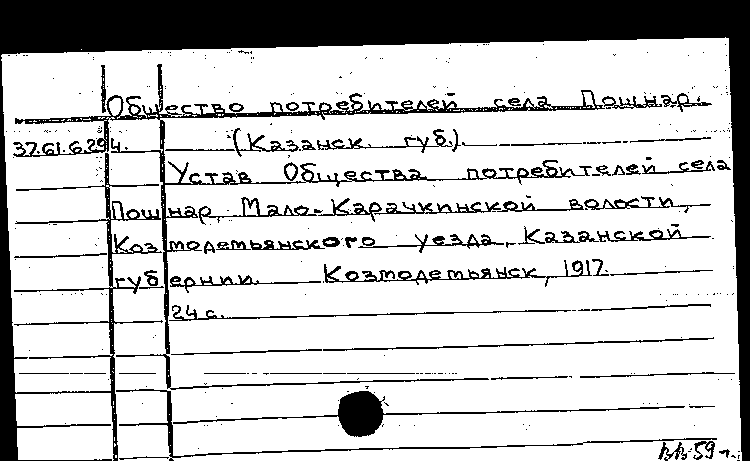 Общество потребителей села Пошнар.
37.61.6.294. (Казанск. губ.).
Устав Общества потребителей села
Пошнар, Мало-Карачкинской волости,
Козмодемьянского уезда, Казанской
губернии. Козмодемьянск, 1917.
24 с.
59 г.